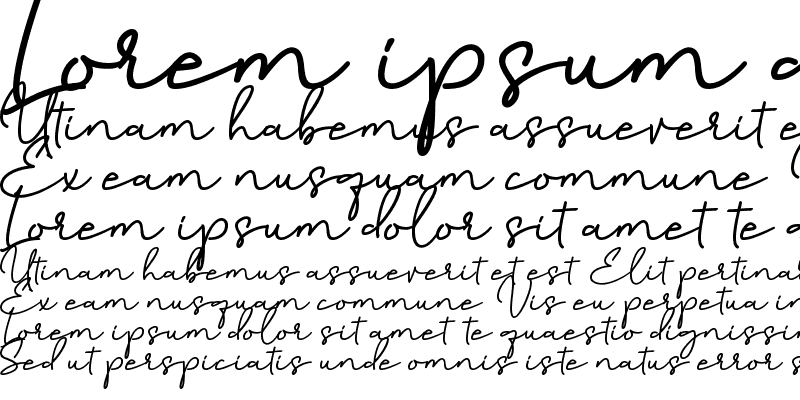 Lorem ipsum
Utinam habemus assueverit
Ex eam nusquam commune
Lorem ipsum dolor sit amet te
Utinam habemus assueverit et est Elit pertina
Ex eam nusquam commune Vis eu perpetua in
Lorem ipsum dolor sit amet te quaestio dignissi
Sed ut perspiciatis unde omnis iste natus error s